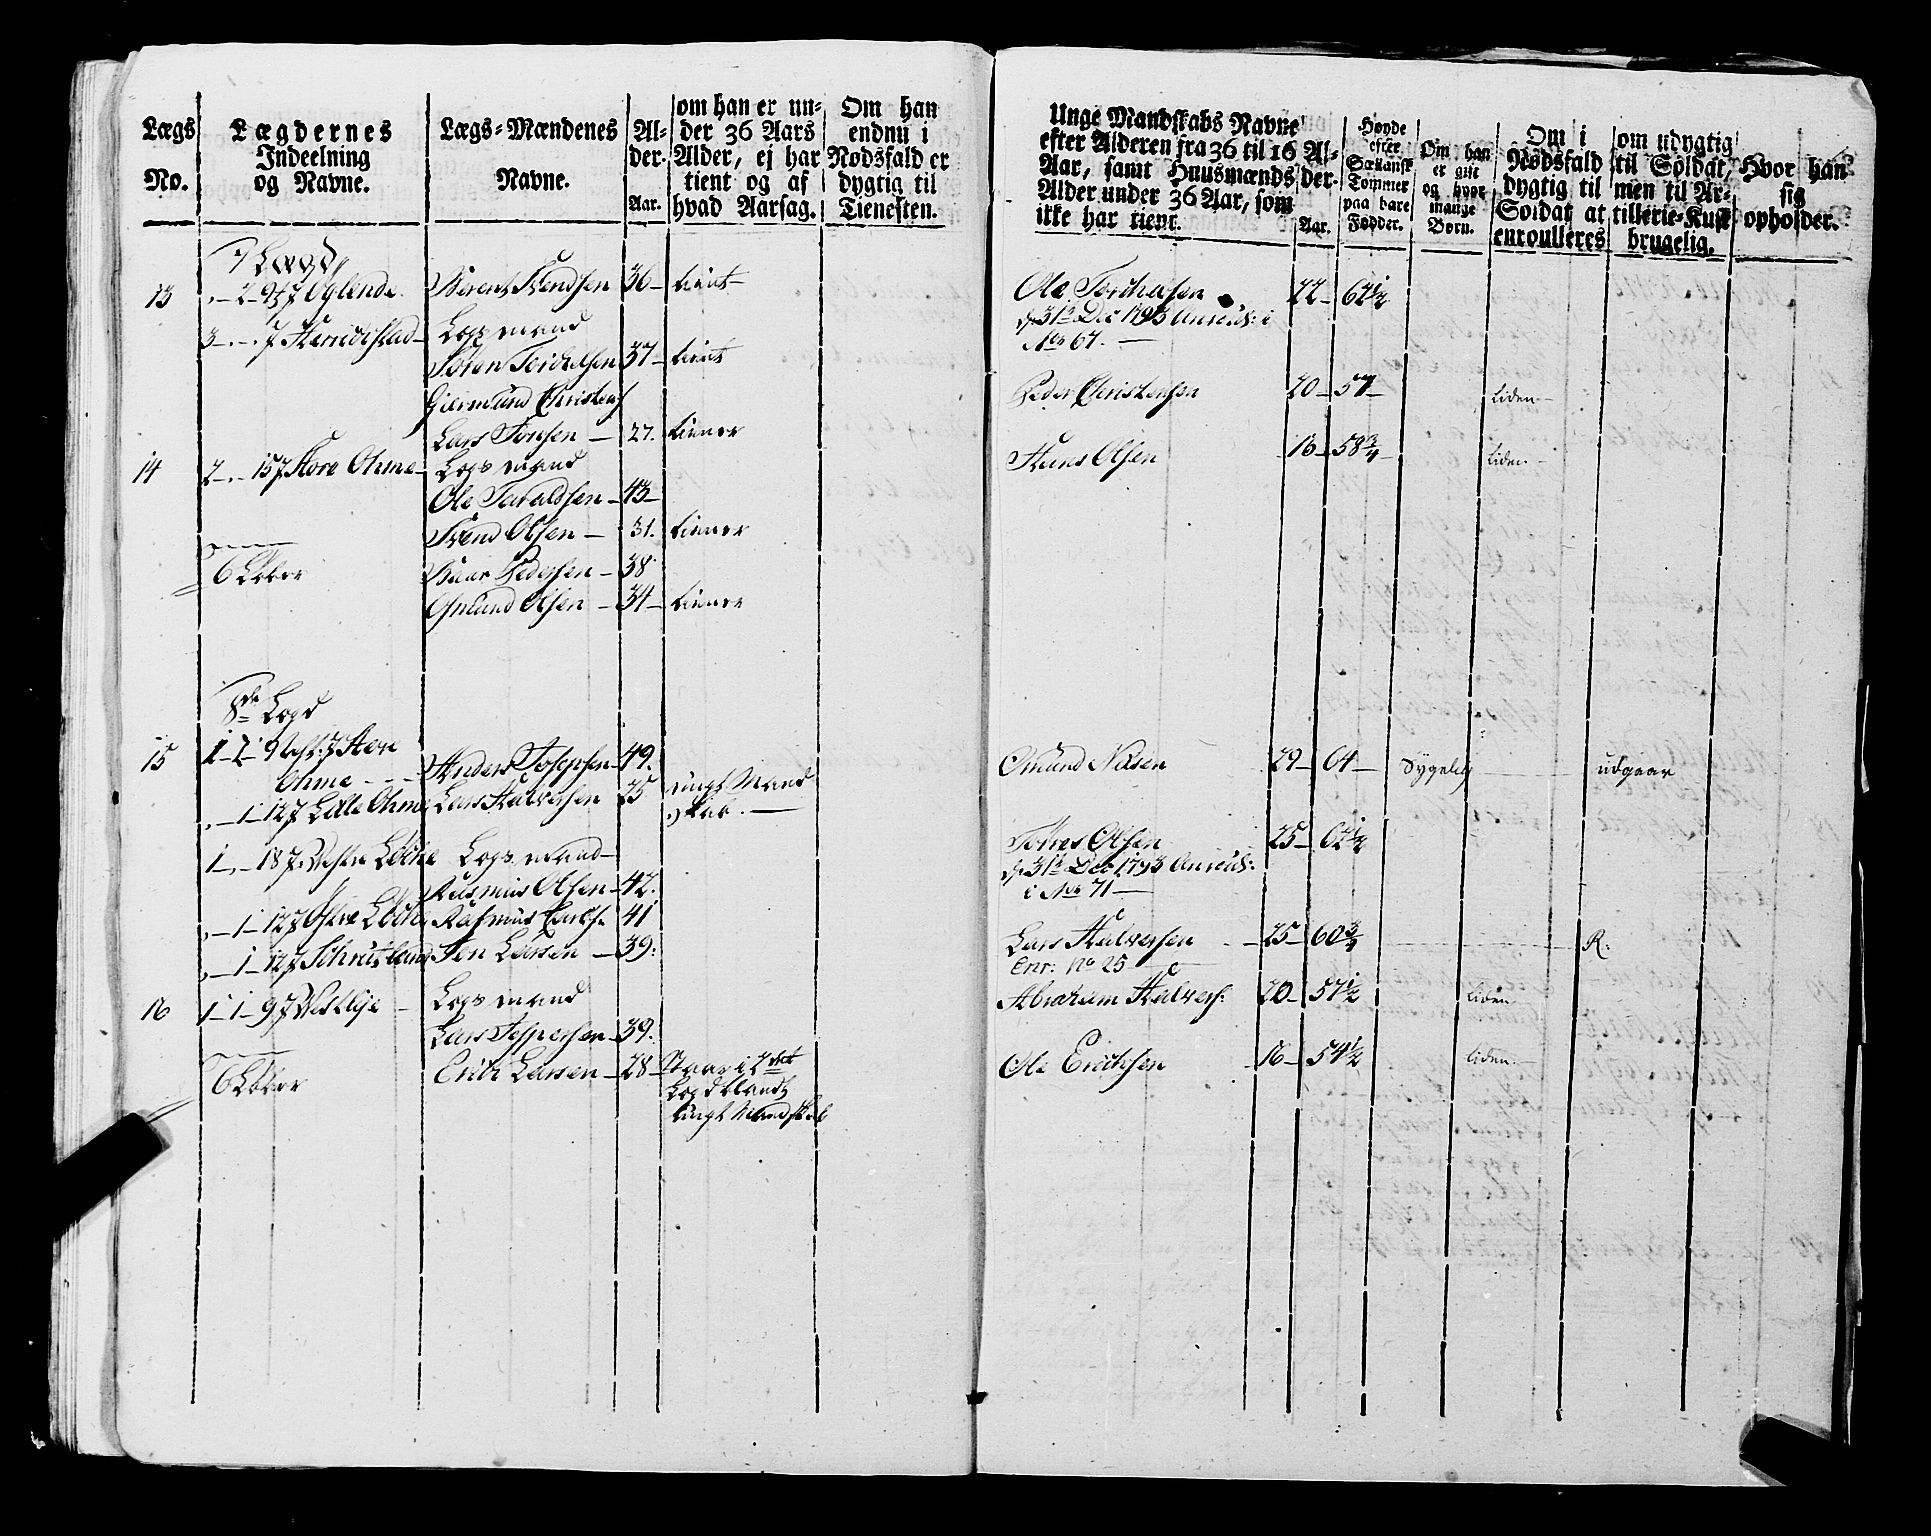 Lægs No.
Lægdernes Indeelning og Navne.
Lægs-Mændenes Navne.
Alder. Aar.
om han er under 36 Aars Alder, ej har tient og af hvad Aarsag.
Om han endnu i Nødsfald er dygtig til Tienesten.
7 Lægd,
13 „ - 2 - 9 Oglende. Berent Svendsen 36 - tient -
3 - „ - Lægs mand
Soren 37 - tient
Giermund Christens
Lars Tonsen - 27. tiener
14 2 - „ - 15 Store Ohme - Lægs mand
Ole Taraldsen - 43 -
Svend Olsen - 31. tiener
6 Løber Baar Pedersen - 38
Osmund Olsen - 34 - tiener
8de Lægd
15 1 - 1 - 9 Store
Ohme - - - Anders Josepsen - 49.
„ - 1 - 12 Lille Ohme Lars Halversen 25 ungt Mand
skab. -
1 - „ - 18 Vestre Lægs mand -
Rasmus Olsen - 42.
„ - 1 - 12 Østre Rasmus 41
„ - 1 - 12 Jon Larsen - 39.
16 1 - 1 - 9 - Lægs mand
Lars Jespersen - 39.
6 Løber Erich Larsen - 28 - Staar i 2det
Lægd blandt
ungt Mandskab
Unge Mandskabs Navne efter Alderen fra 36 til 16 Aar, samt Huusmænds Alder under 36 Aar, som ikke har tient.
Alder. Aar.
Høyde efter Sællansk Tommer paa bare Fødder.
Om han er gift og hvor mange Børn.
Om i Nødsfald dygtig til Soldat at enroulleres
om udygtig til Soldat, men til Artillerie-Kusk brugelig.
Hvor han sig opholder.
Ole 22 - 62 1/2
d. 31te Dec 1793 Anred: i
No 67. -
Peder Christensen 20 - 57 - liden -
Hans Olsen - 16 - 58 3/4 - liden -
Omund Nilsen 29 - 64 - Sygelig - udgaar
Tolles Olsen 25 - 62 1/2
d. 31te Dec 1793 Anred:
i No 71 -
Lars Halversen - 25 - 60 3/4 - R.
Enr: No 25
Abraham Halvers: 20 - 57 1/2 liden -
Ole Erichsen - 16 - 54 1/2 liden -